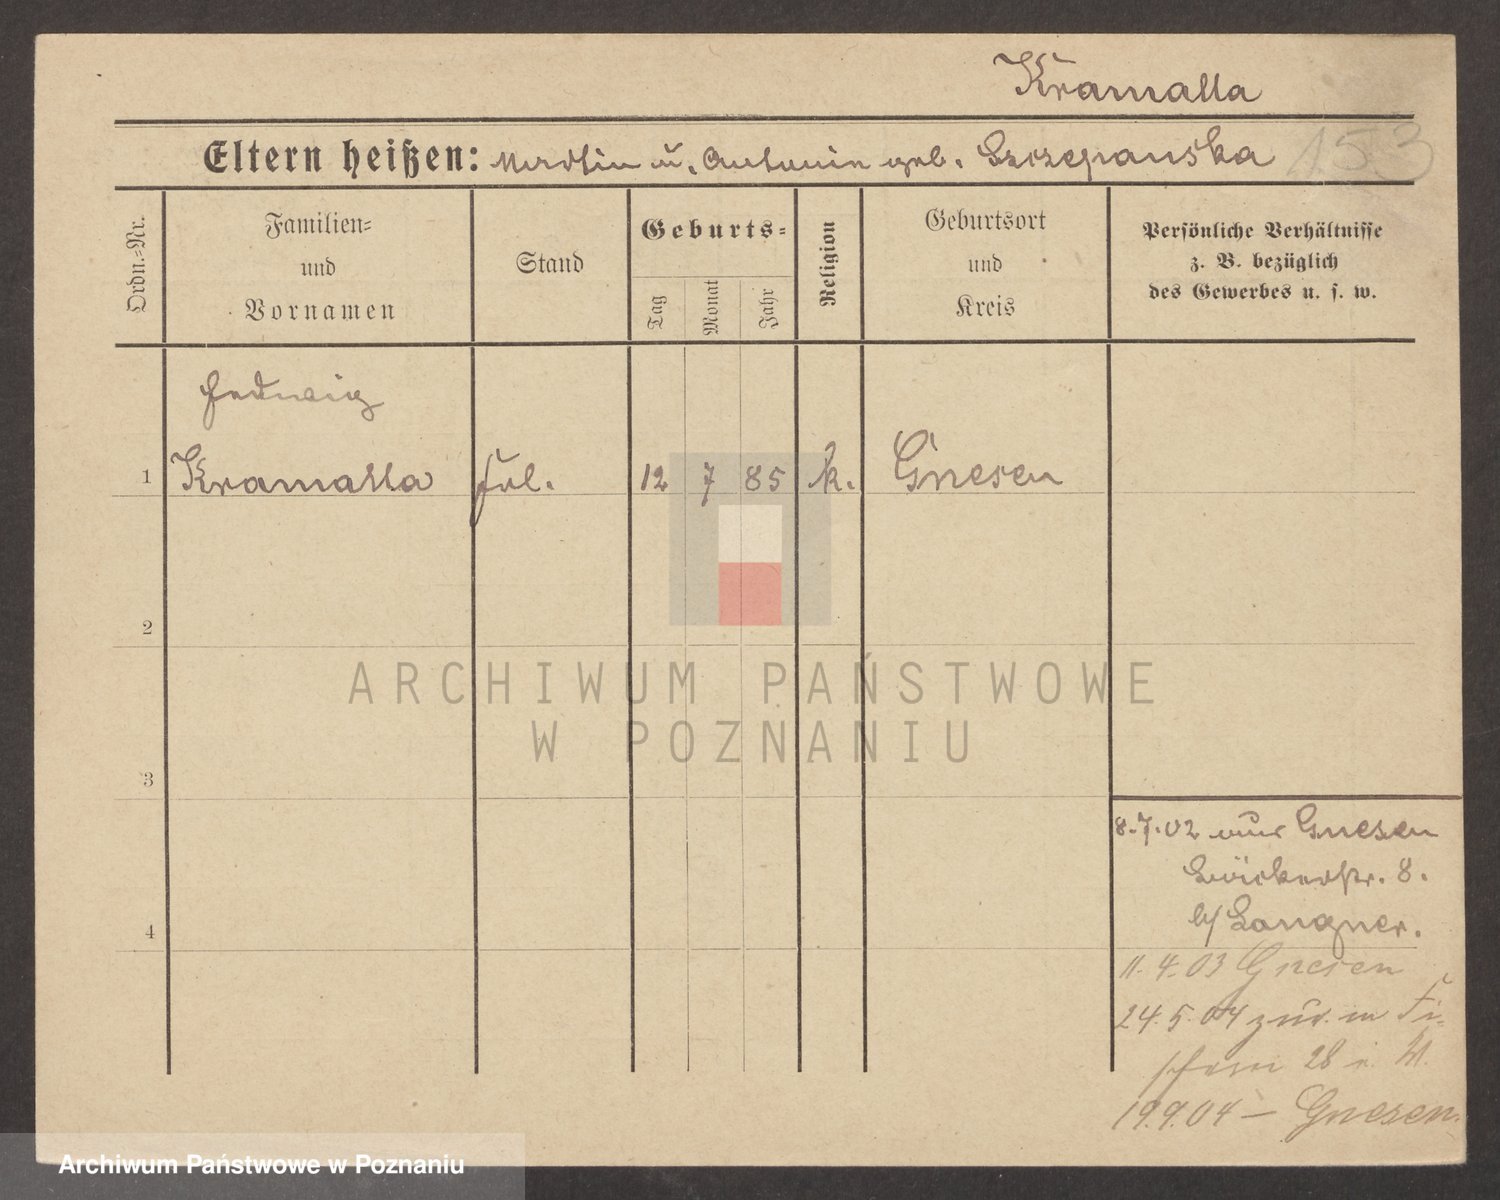 Kramalla
Eltern heißen: Martin u. Antonie geb. Szczepanska
153
Ordn.=Nr.
Familien=
und
Vornamen
Stand
Geburts=
Tag
Monat
Jahr
Religion
Geburtsort
und
Kreis
Persönliche Verhältnisse
z. B. bezüglich
des Gewerbes u. s. w.
Hedwig
1 Kramalla frl. 12 7 85 k. Gnesen
2
3
4
8.7.02 aus Gnesen
8.
b/ Langner.
11.4.03 Gnesen
24.5.04 zur. in Fi=
scherei 28 i. H.
19.9.04 — Gnesen
ARCHIWUM PAŃSTWOWE
W POZNANIU
Archiwum Państwowe w Poznaniu